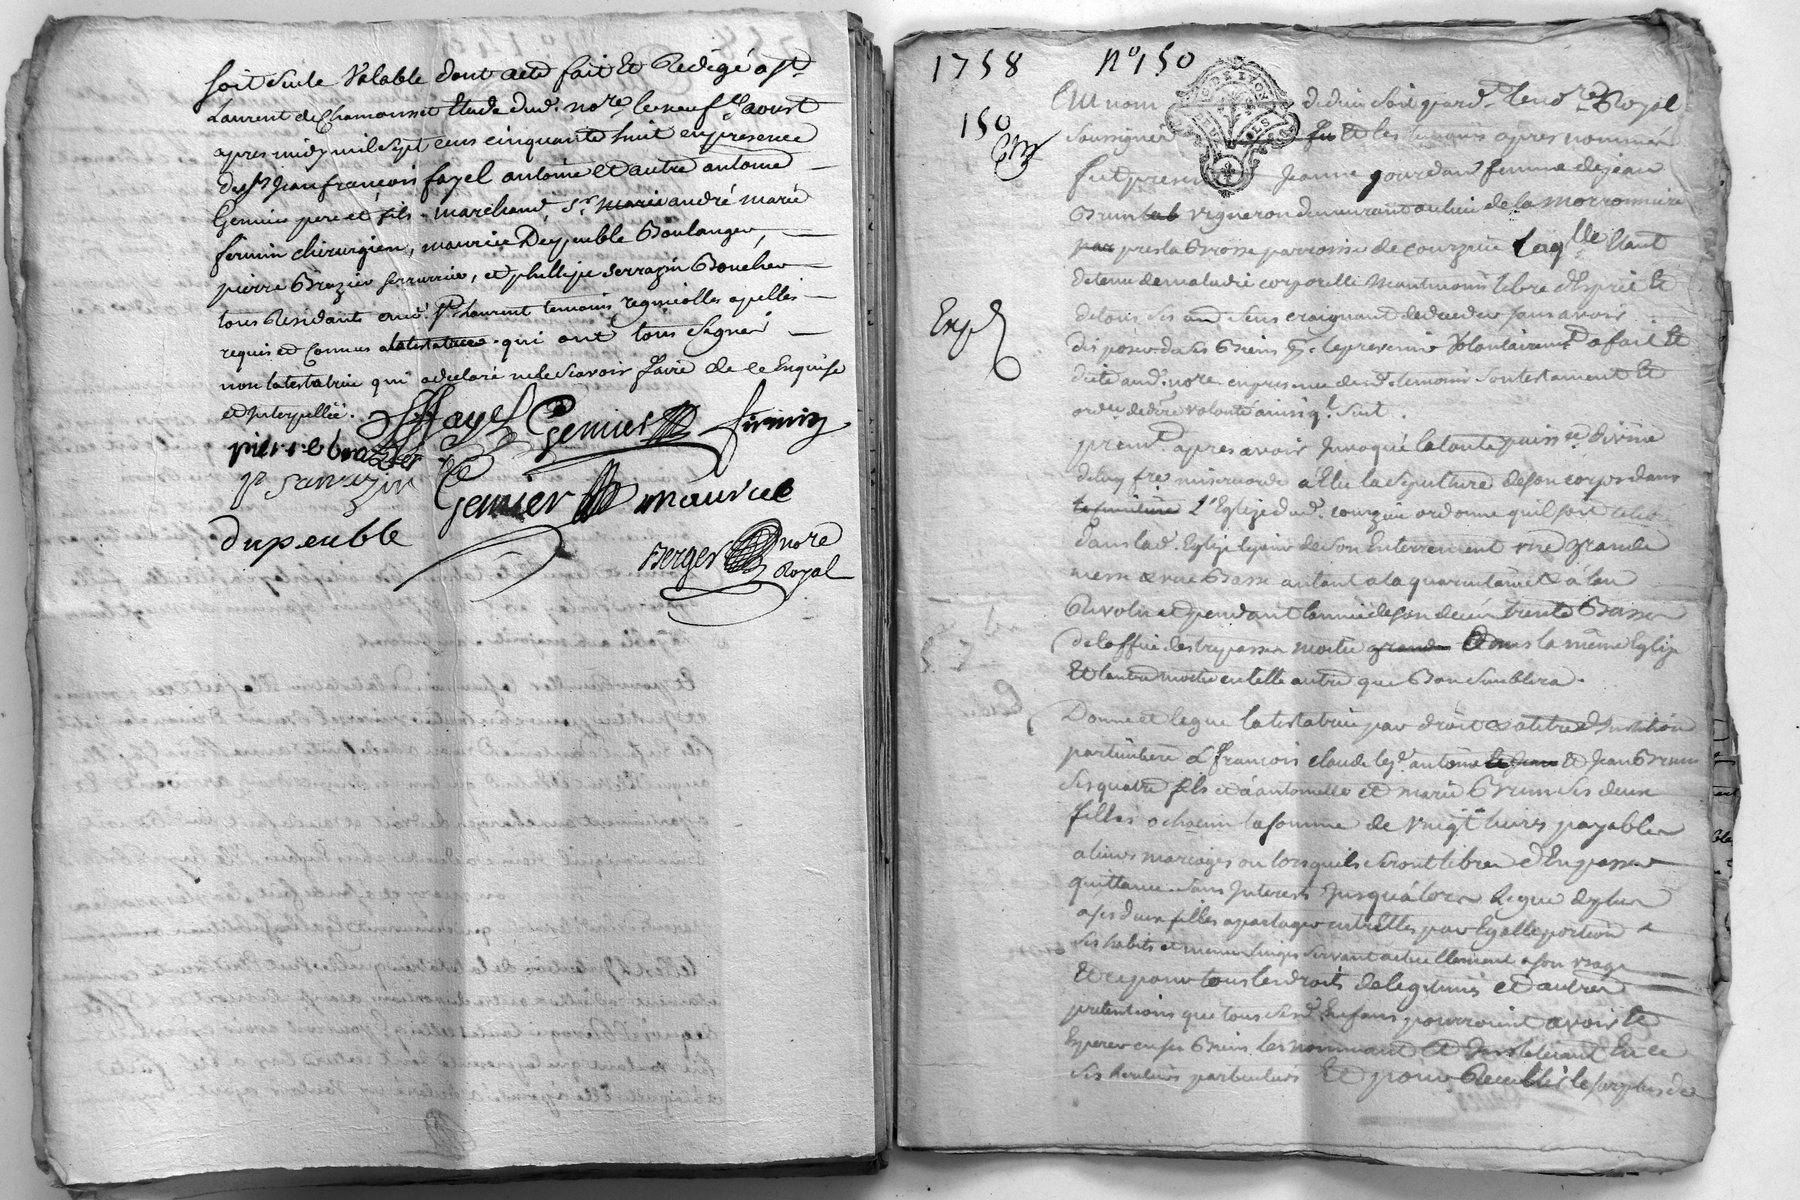 soit seule Valable dont acte fait et Redigé a St
Laurent de Chamousset Etude dud. nore le neuf aoust
apres midy mil sept cens cinquante huit en presence
de Sr Jean françois fayel antoine et autre antoine
Gemier pere et fils marchand, Sr Marie andré marie
firmin chirurgien, maurice Dupeuble Boulanger,
pierre Brazier serrurier, et phillipe Serrazin Boucher
tous Residants aud. St Laurent temoins regnicolles apellés
requis et Connus a la testatrice qui ont tous Signé
non la testatrice qui a declaré ne le Scavoir faire de ce Enquise
et Interpellée.
ffayel Gemier firmin
pierre brazier
P Sarrazin Gemier maurice
dupeuble
Berger nore
Royal
1758 no 150
150
Exp
Au nom de dieu soit par devt le nore Royal
Soussigné et les temoins apres nommés
fut presente Jeanne jourdan femme de jean
Brun vigneron demeurant au lieu de la morronniere
pres la Brosse parroisse de courzieu laqlle Etant
detenue de maladie corporelle neantmoins libre d'Esprit Et
de tous ses Sens craignant de deceder sans avoir
disposé de ses Biens le prevenir Volontairemt a fait Et
dicté aud. nore en presence desd. temoins son testament Et
ord. de dere volonté ainsi q. Suit.
premt apres avoir Invoqué la toute puisse divine
a Elu la Sepulture de son corps dans
l'Eglise dud. courzieu ordonne quil soit celeb
dans lad. Eglise le jour de son Enterrement une grande
messe & une Basse autant a la quarantaine & a l'an
Revolu et pendant l'année de son deces trente Basses
de l'office des trepasses moitié grandes dans la même Eglise
Et l'autre moitié en telle autre que Bon semblera.
Donne et legue la testatrice par droit & a titre d'Institution
particuliere a françois claude led. antoine et Jean Brun
Ses quatre fils et a antoinette et marie Brun ses deux
filles a chacun la somme de vingt livres payables
a leurs mariages ou lorsquils seront libres d'En passer
quittance sans Interests Jusqu'alors Legue de plus
a ses deux filles a partager entr'Elles par Egalle portion
Ses habits et menus linges servant actuellement a son usage
Et ce pour tous les droits de legitimes et autres
pretentions que tous sesd. Enfans pourroient avoir Et
Esperer en ses Biens les nommant & Instituant En ce
Ses heritiers particuliers Et pour Recueillir le surplus de